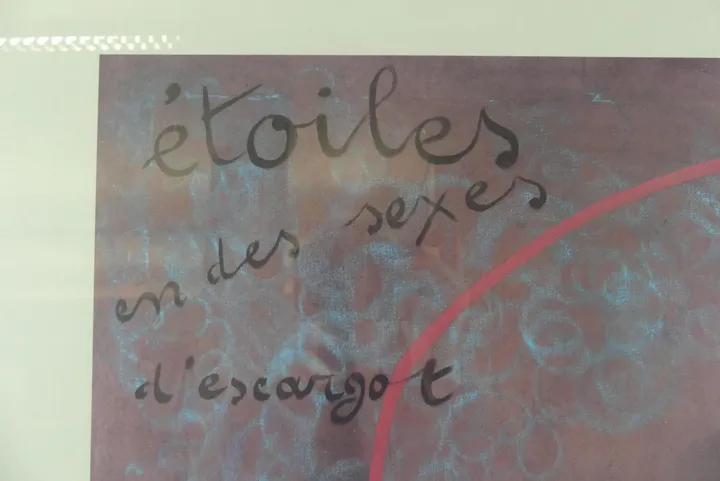 étoiles
en des sexes
d'escargot